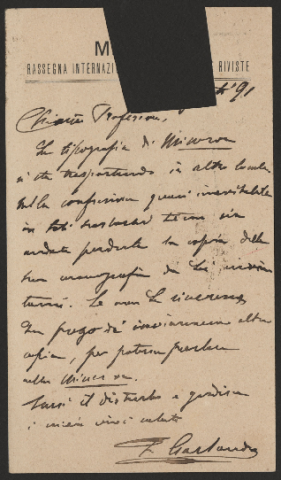 M
RASSEGNA INTERNAZI RIVISTE
91
Chiar.mo Professore,
La tipografia di Minerva
si sta trasportando in altro locale.
Nella confusione quasi inevitabile
in
andata perduta la copia della
sua monografia da Lei
Se non Le rincresce,
La prego d'inviarmene altra
copia, per poterne parlare
nella Minerva.
Scusi il disturbo e gradisca
i miei vivi saluti
F. Garlanda